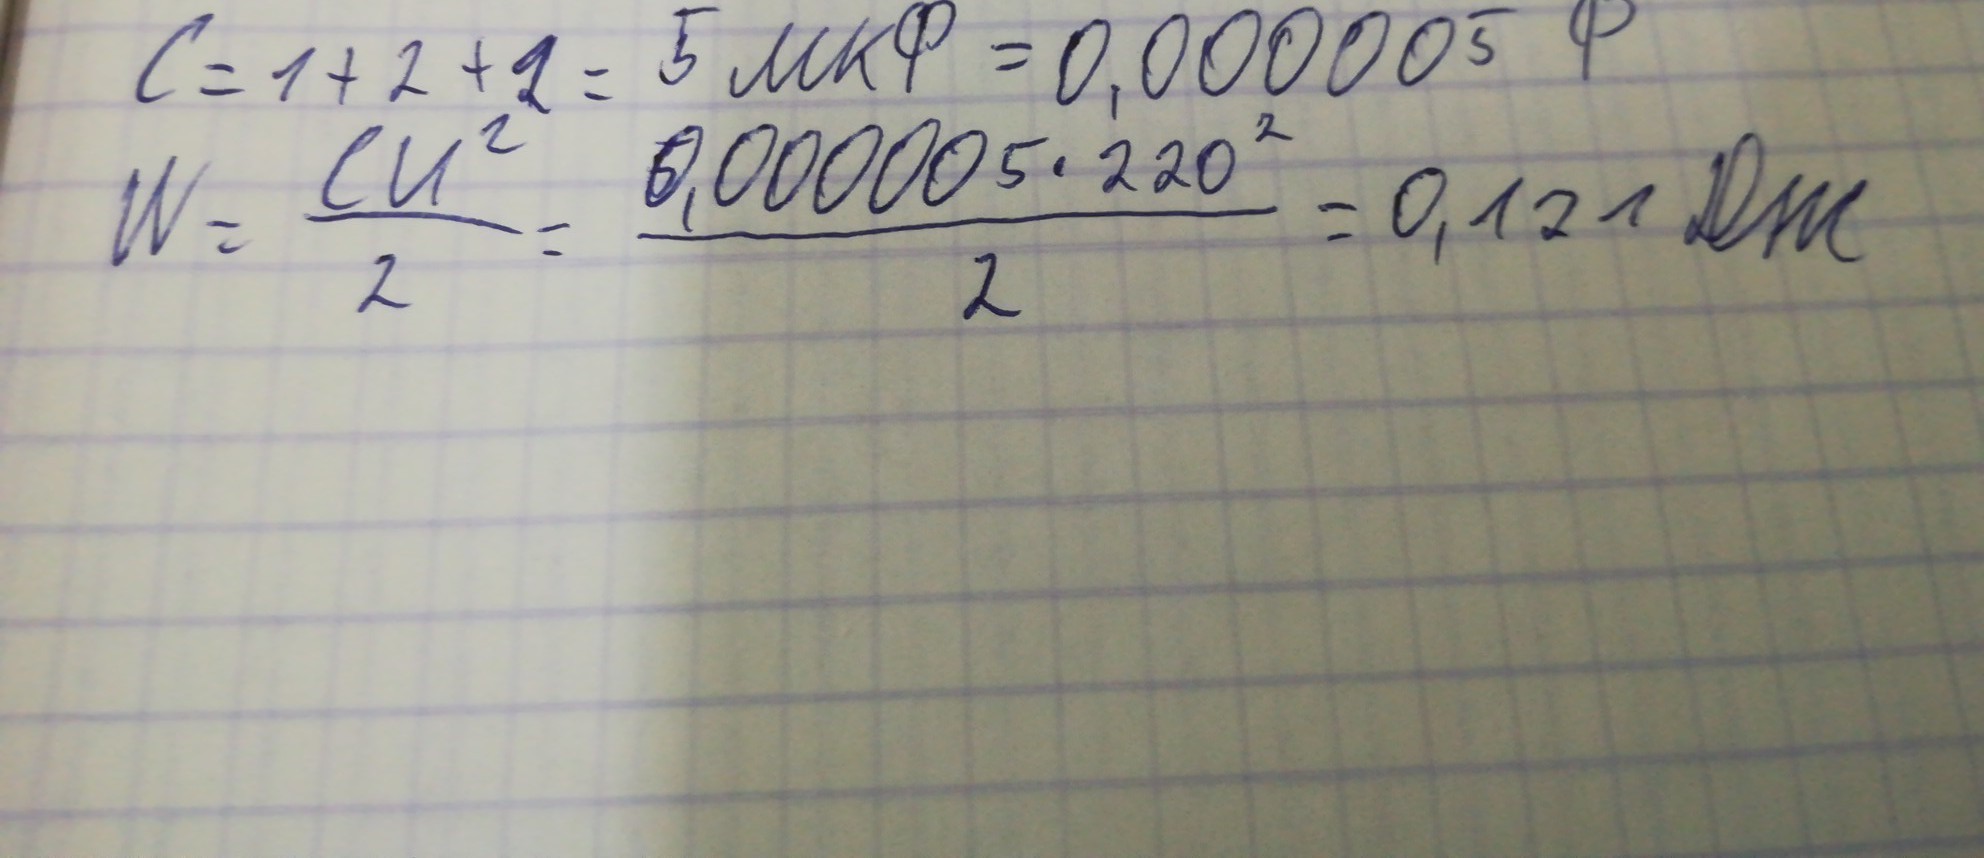 C = 1 + 2 + 2 = 5 мкФ = 0,000005 Ф
W = CU²/2 = 0,000005 · 220²/2 = 0,121 Дж